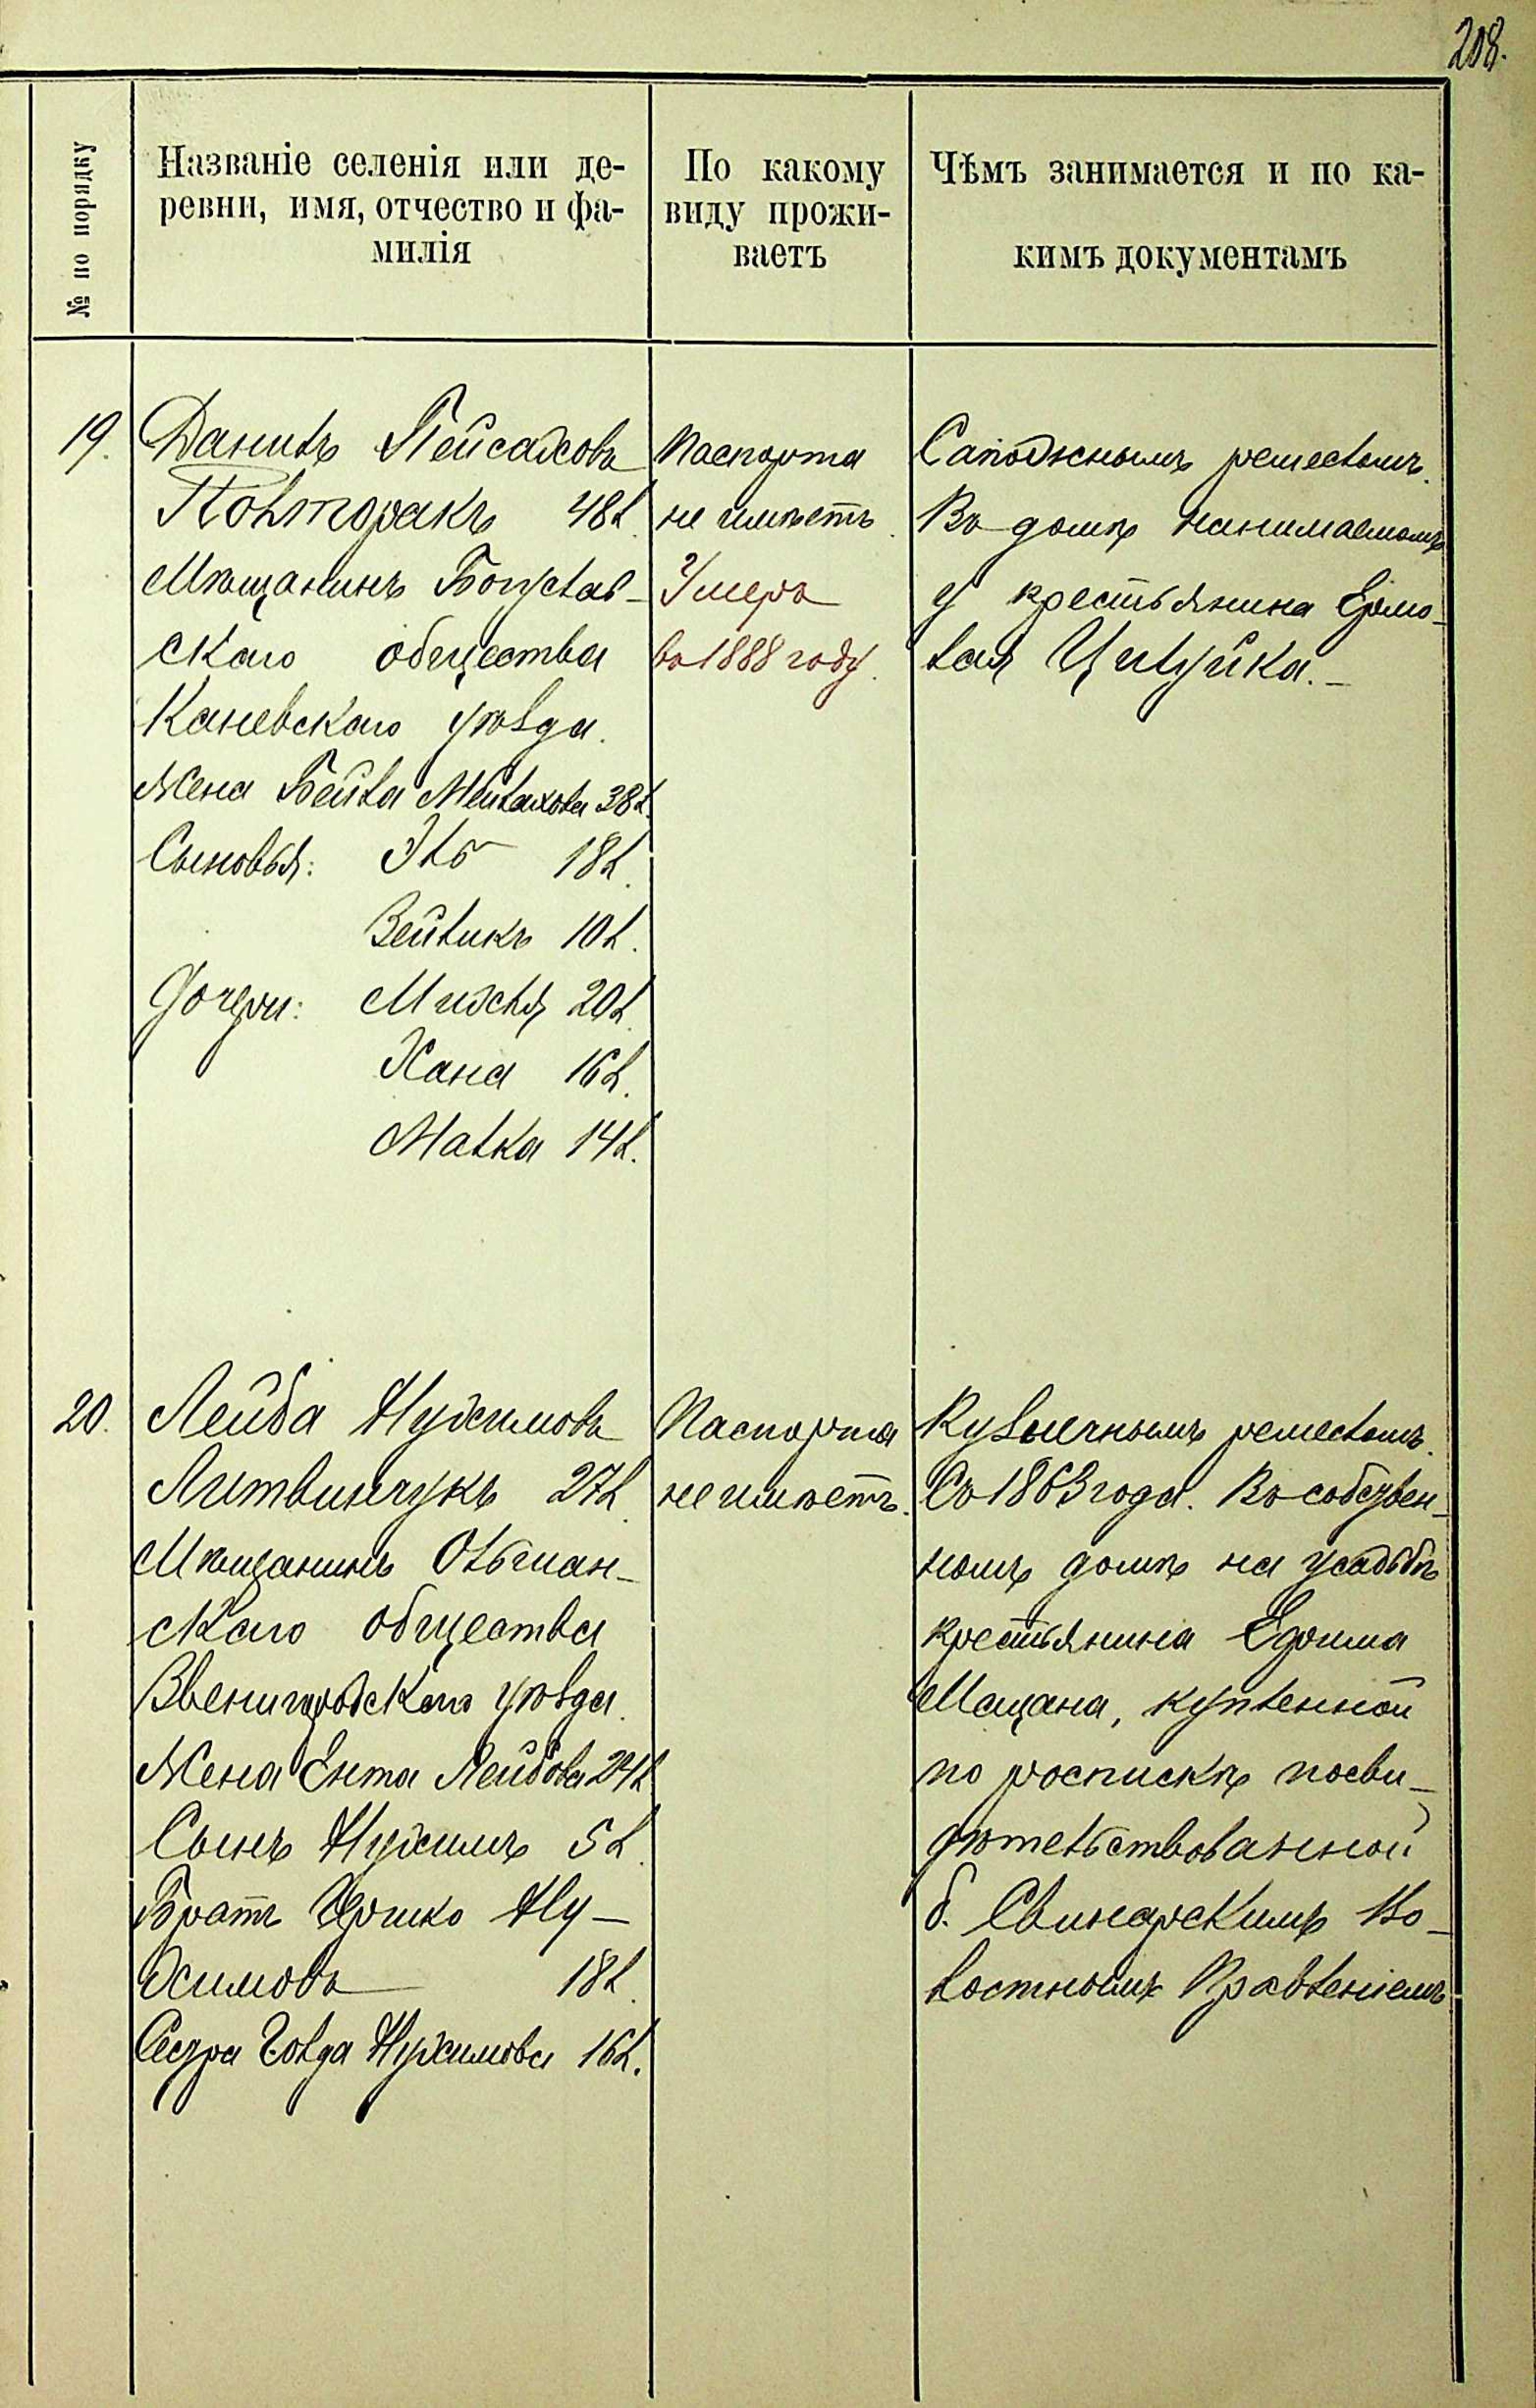 208.
№ по порядку
Названіе селенія или де-
ревни, имя, отчество и фа-
милія
По какому
виду прожи-
ваетъ
Чѣмъ занимается и по ка-
кимъ документамъ
19.
Данилъ Пейсаховъ
Полторакъ 48 л.
Мѣщанинъ Богуслав-
скаго общества
Каневскаго уѣзда.
Жена Бейла Мейлахова 38 л.
Сыновья: Эль 18 л.
Зейликъ 10 л.
Дочери: 20 л.
Хана 16 л.
Малка 14 л.
Паспорта
не имѣетъ.
Умеръ
въ 1888 году.
Сапожнымъ ремесломъ.
Въ домѣ нанимаемомъ
у крестьянина Ермо-
лая Цицуйка.–
20.
Лейба Нухимовъ
Литвинчукъ 27 л.
Мѣщанинъ Ольшан-
скаго общества
Звенигородскаго уѣзда.
Жена Ента Лейбова 24 л.
Сынъ Нухимъ 5 л.
Братъ Гершко Ну-
химовъ 18 л.
Сестра Голда Нухимова 16 л.
Паспорта
не имѣетъ.
Кузнечнымъ ремесломъ.
Съ 1863 года. Въ собствен-
номъ домѣ на усадьбѣ
крестьянина Ефима
Мацана, купленной
по роспискѣ посви-
дѣтельствованной
б. Свинарскимъ Во-
лостнымъ Правленіемъ